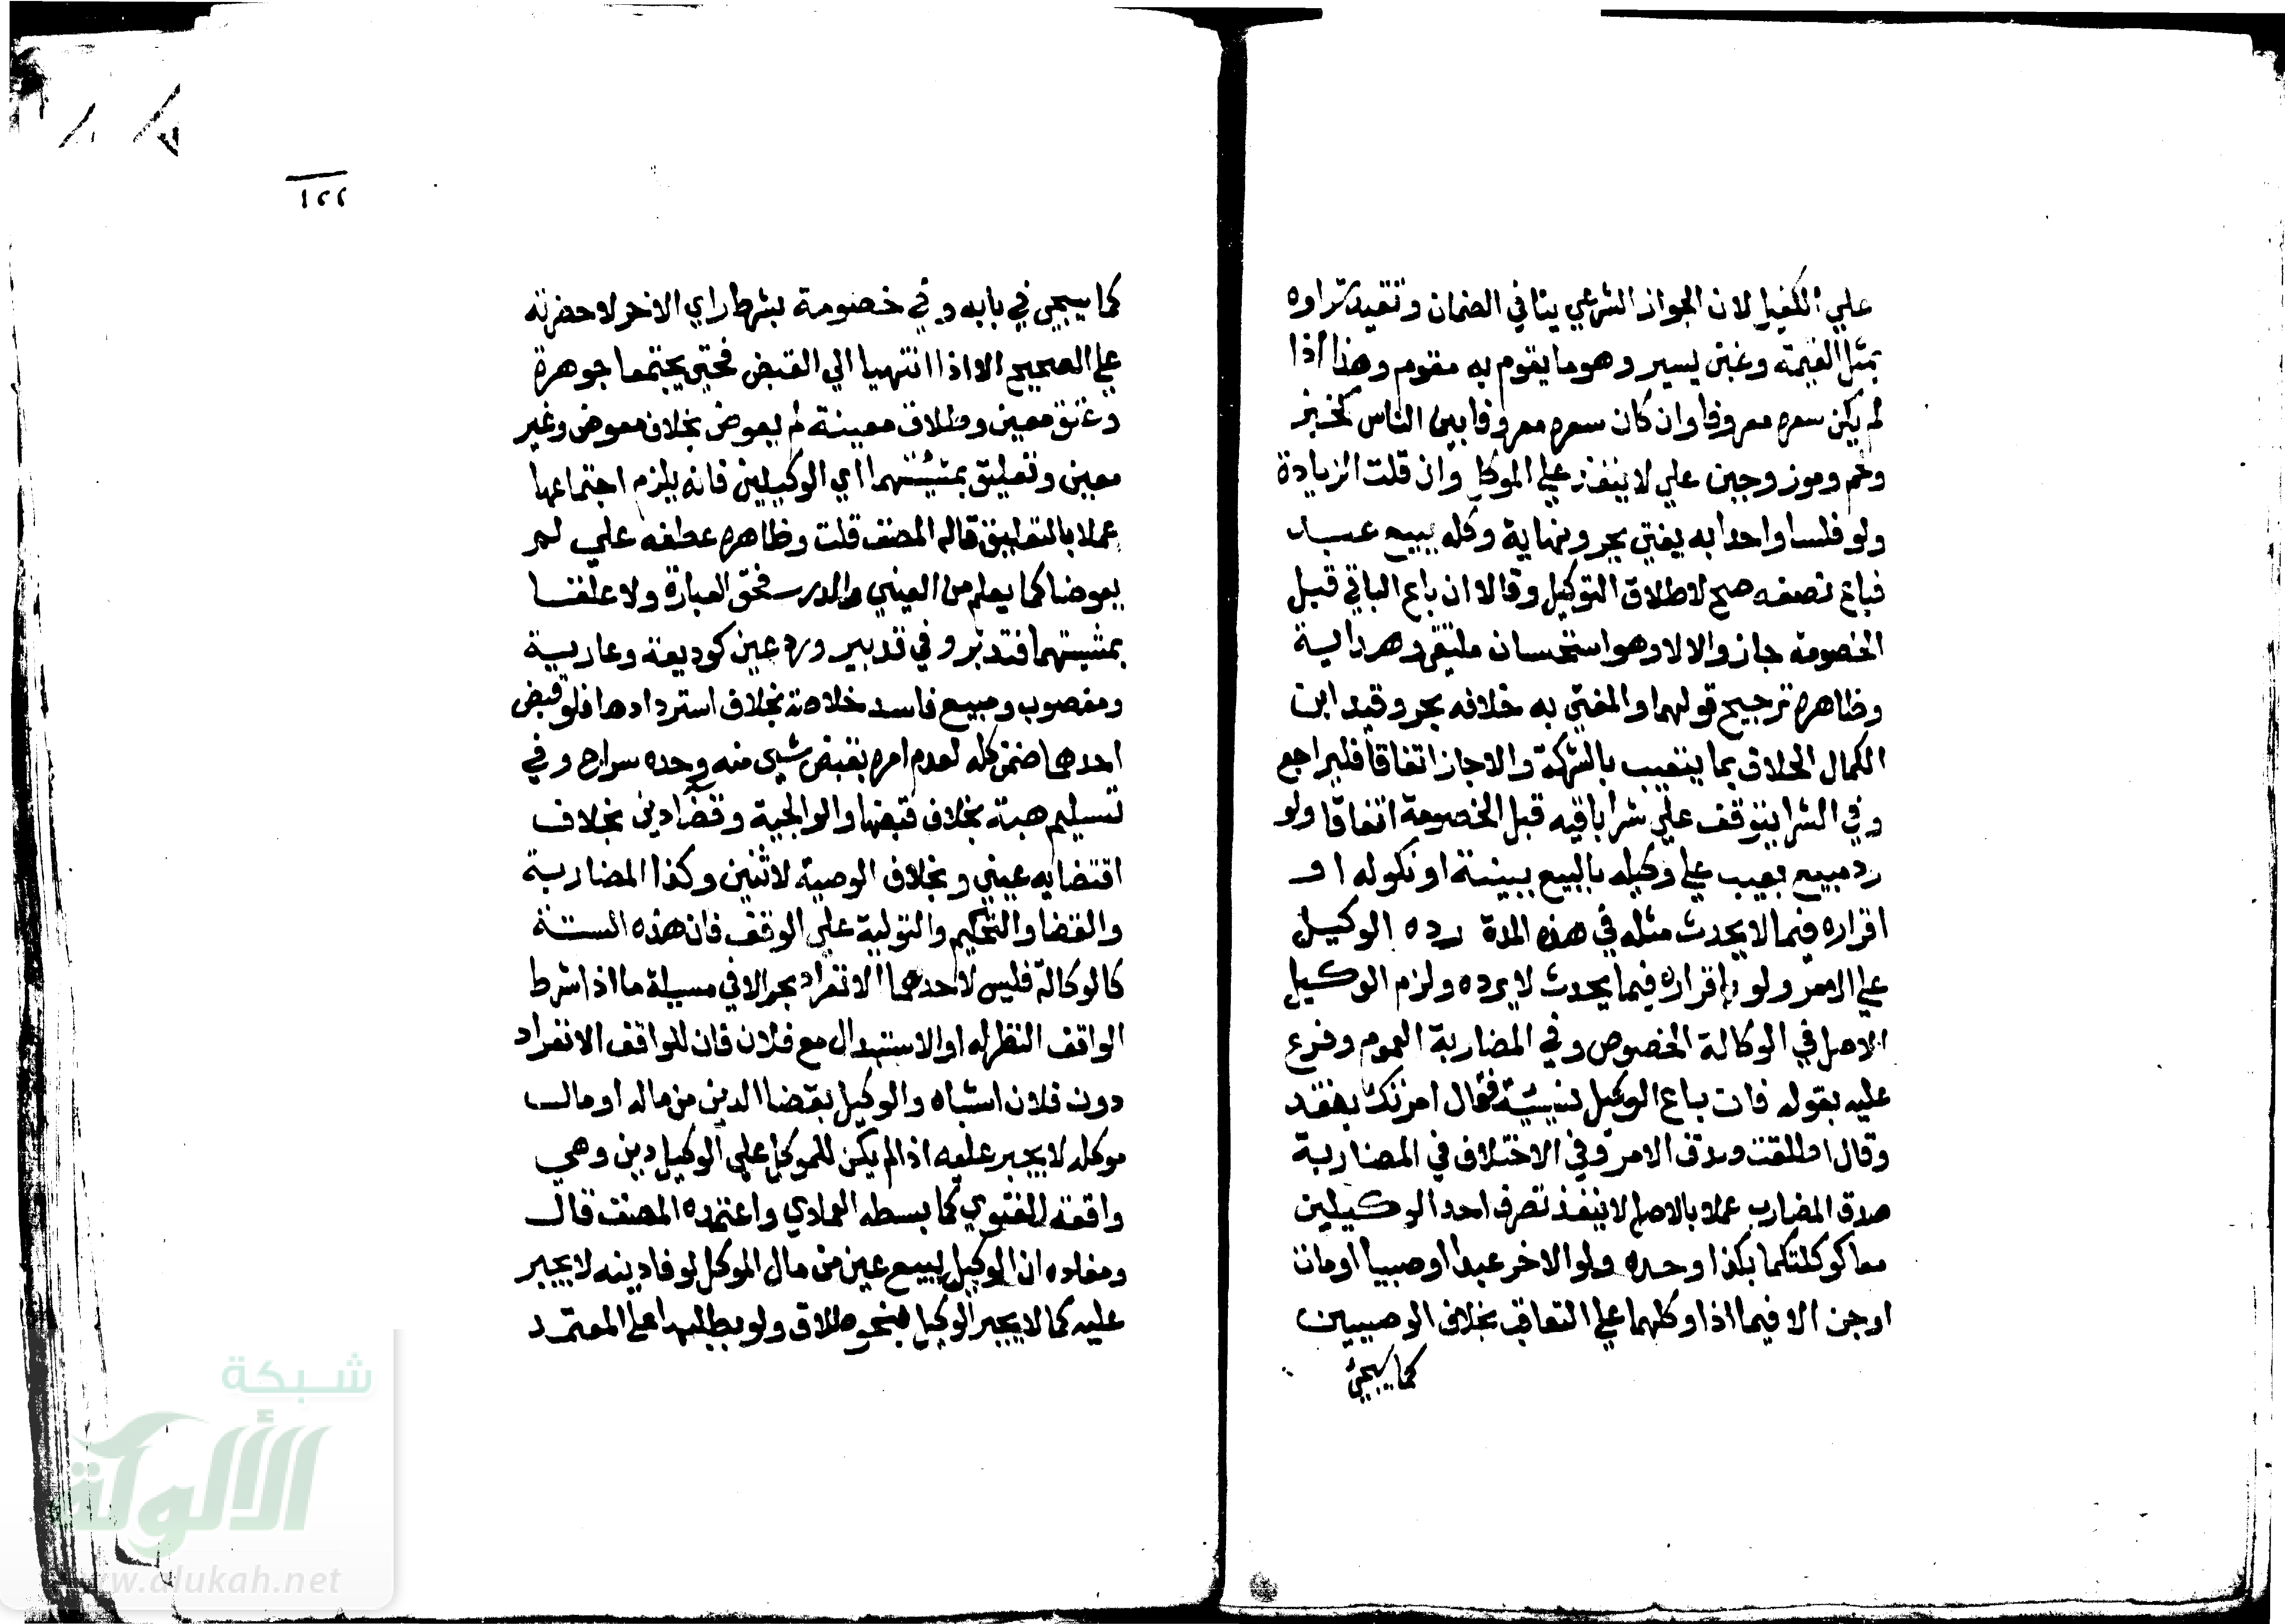 علي الكفيل لان الجواز الشرعي ينافي الضمان وتقيد شراوه
بمثل القيمة وغبن يسير وهو ما يقوم به مقوم وهذا اذا
لم يكن سعره معروفا وان كان سعره معروفا بين الناس كخبز
ولحم وموز وجبن علي لا ينفذ علي الموكل وان قلت الزيادة
ولو فلسا واحدا به يفتي بحر ونهاية وكله ببيع عبد
فباع نصفه صح لاطلاق التوكيل وقالا ان باع الباقي قبل
الخصومة جاز والا لا وهو استحسان ملتقي وهداية
وظاهره ترجيح قولهما والمفتي به خلافه بحر وقيد ابن
الكمال الخلاف بما يتعيب بالشركة والا جاز اتفاقا فليراجع
وفي الشرا يتوقف علي شرا باقيه قبل الخصومة اتفاقا ولو
رد مبيع بعيب علي وكيله بالبيع ببينة او نكوله او
اقراره فيما لا يحدث مثله في هذه المدة رده الوكيل
علي الامر ولو باقراره فيما يحدث لا يرده ولزم الوكيل
الاصل في الوكالة الخصوص وفي المضاربة العموم وفرع
عليه بقوله فان باع الوكيل نسيئة فقال امرتك بنقد
وقال اطلقت صدق الامر وفي الاختلاف في المضاربة
صدق المضارب عملا بالاصل لا ينفذ تصرف احد الوكيلين
معا كوكلتكما بكذا وحده ولو الاخر عبدا او صبيا او مات
او جن الا فيما اذا وكلهما علي التعاقب بخلاف الوصيين
كما يجئ
١٢٢
كما يجي في بابه و في خصومة بشرط راي الاخر لا حضرته
علي الصحيح الا اذا انتهيا الي القبض فحتي يجتمعا جوهرة
وعتق معين وطلاق معينة لم يعوض بخلاف معوض وغير
معين وتعليق بمشيئتهما اي الوكيلين فانه يلزم اجتماعهما
عملا بالتعليق قاله المصنف قلت وظاهره عطفه علي لم
يعوضا كما يعلم من العيني والدرر فحق العبارة ولا علقا
بمشيئتهما فتدبر و في تدبير ورد عين كوديعة وعارية
ومغصوب ومبيع فاسد خلاصة بخلاف استردادها فلو قبض
احدهما ضمن كله لعدم امره بقبض شيى منه وحده سراج و في
تسليم هبة بخلاف قبضها والوالجية وقضا دين بخلاف
اقتضايه عيني و بخلاف الوصية لاثنين وكذا المضاربة
والقضا والتحكيم والتولية علي الوقف فان هذه الستة
كالوكالة فليس لاحدهما الانفراد بحر الا في مسيلة ما اذا شرط
الواقف النظر له او الاستبدال مع فلان فان للواقف الانفراد
دون فلان اشباه والوكيل بقضا الدين من ماله او مال
موكله لا يجبر عليه اذا لم يكن للموكل علي الوكيل دين وهي
واقعة الفتوي كما بسطه العمادي واعتمده المصنف قال
ومفاده ان الوكيل ببيع عين من مال الموكل لوفا دينه لا يجبر
عليه كما لا يجبر الوكيل بنحو طلاق ولو بطلبها علي المعتمد
شبكة
الألوكة
www.alukah.net